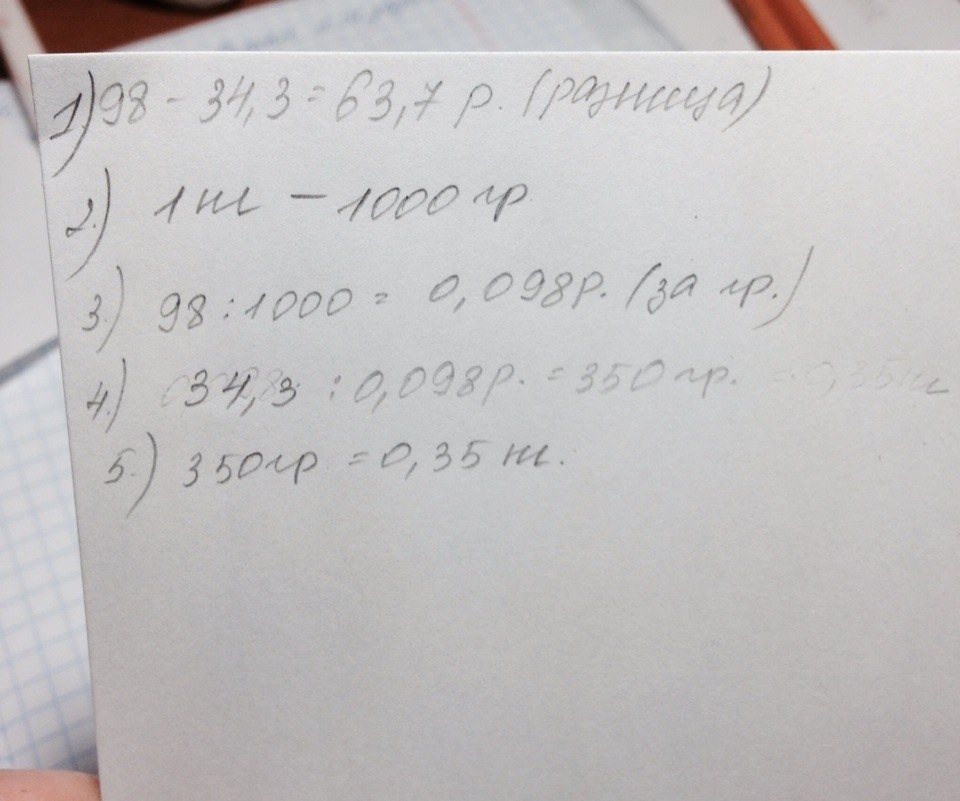 1) 98 - 34,3 = 63,7 р. (разница)
2.) 1 кг — 1000 гр
3.) 98 : 1000 = 0,098р. (за гр.)
4.) 34,3 : 0,098р. = 350 гр. = 0,35 кг
5.) 350гр = 0,35 кг.